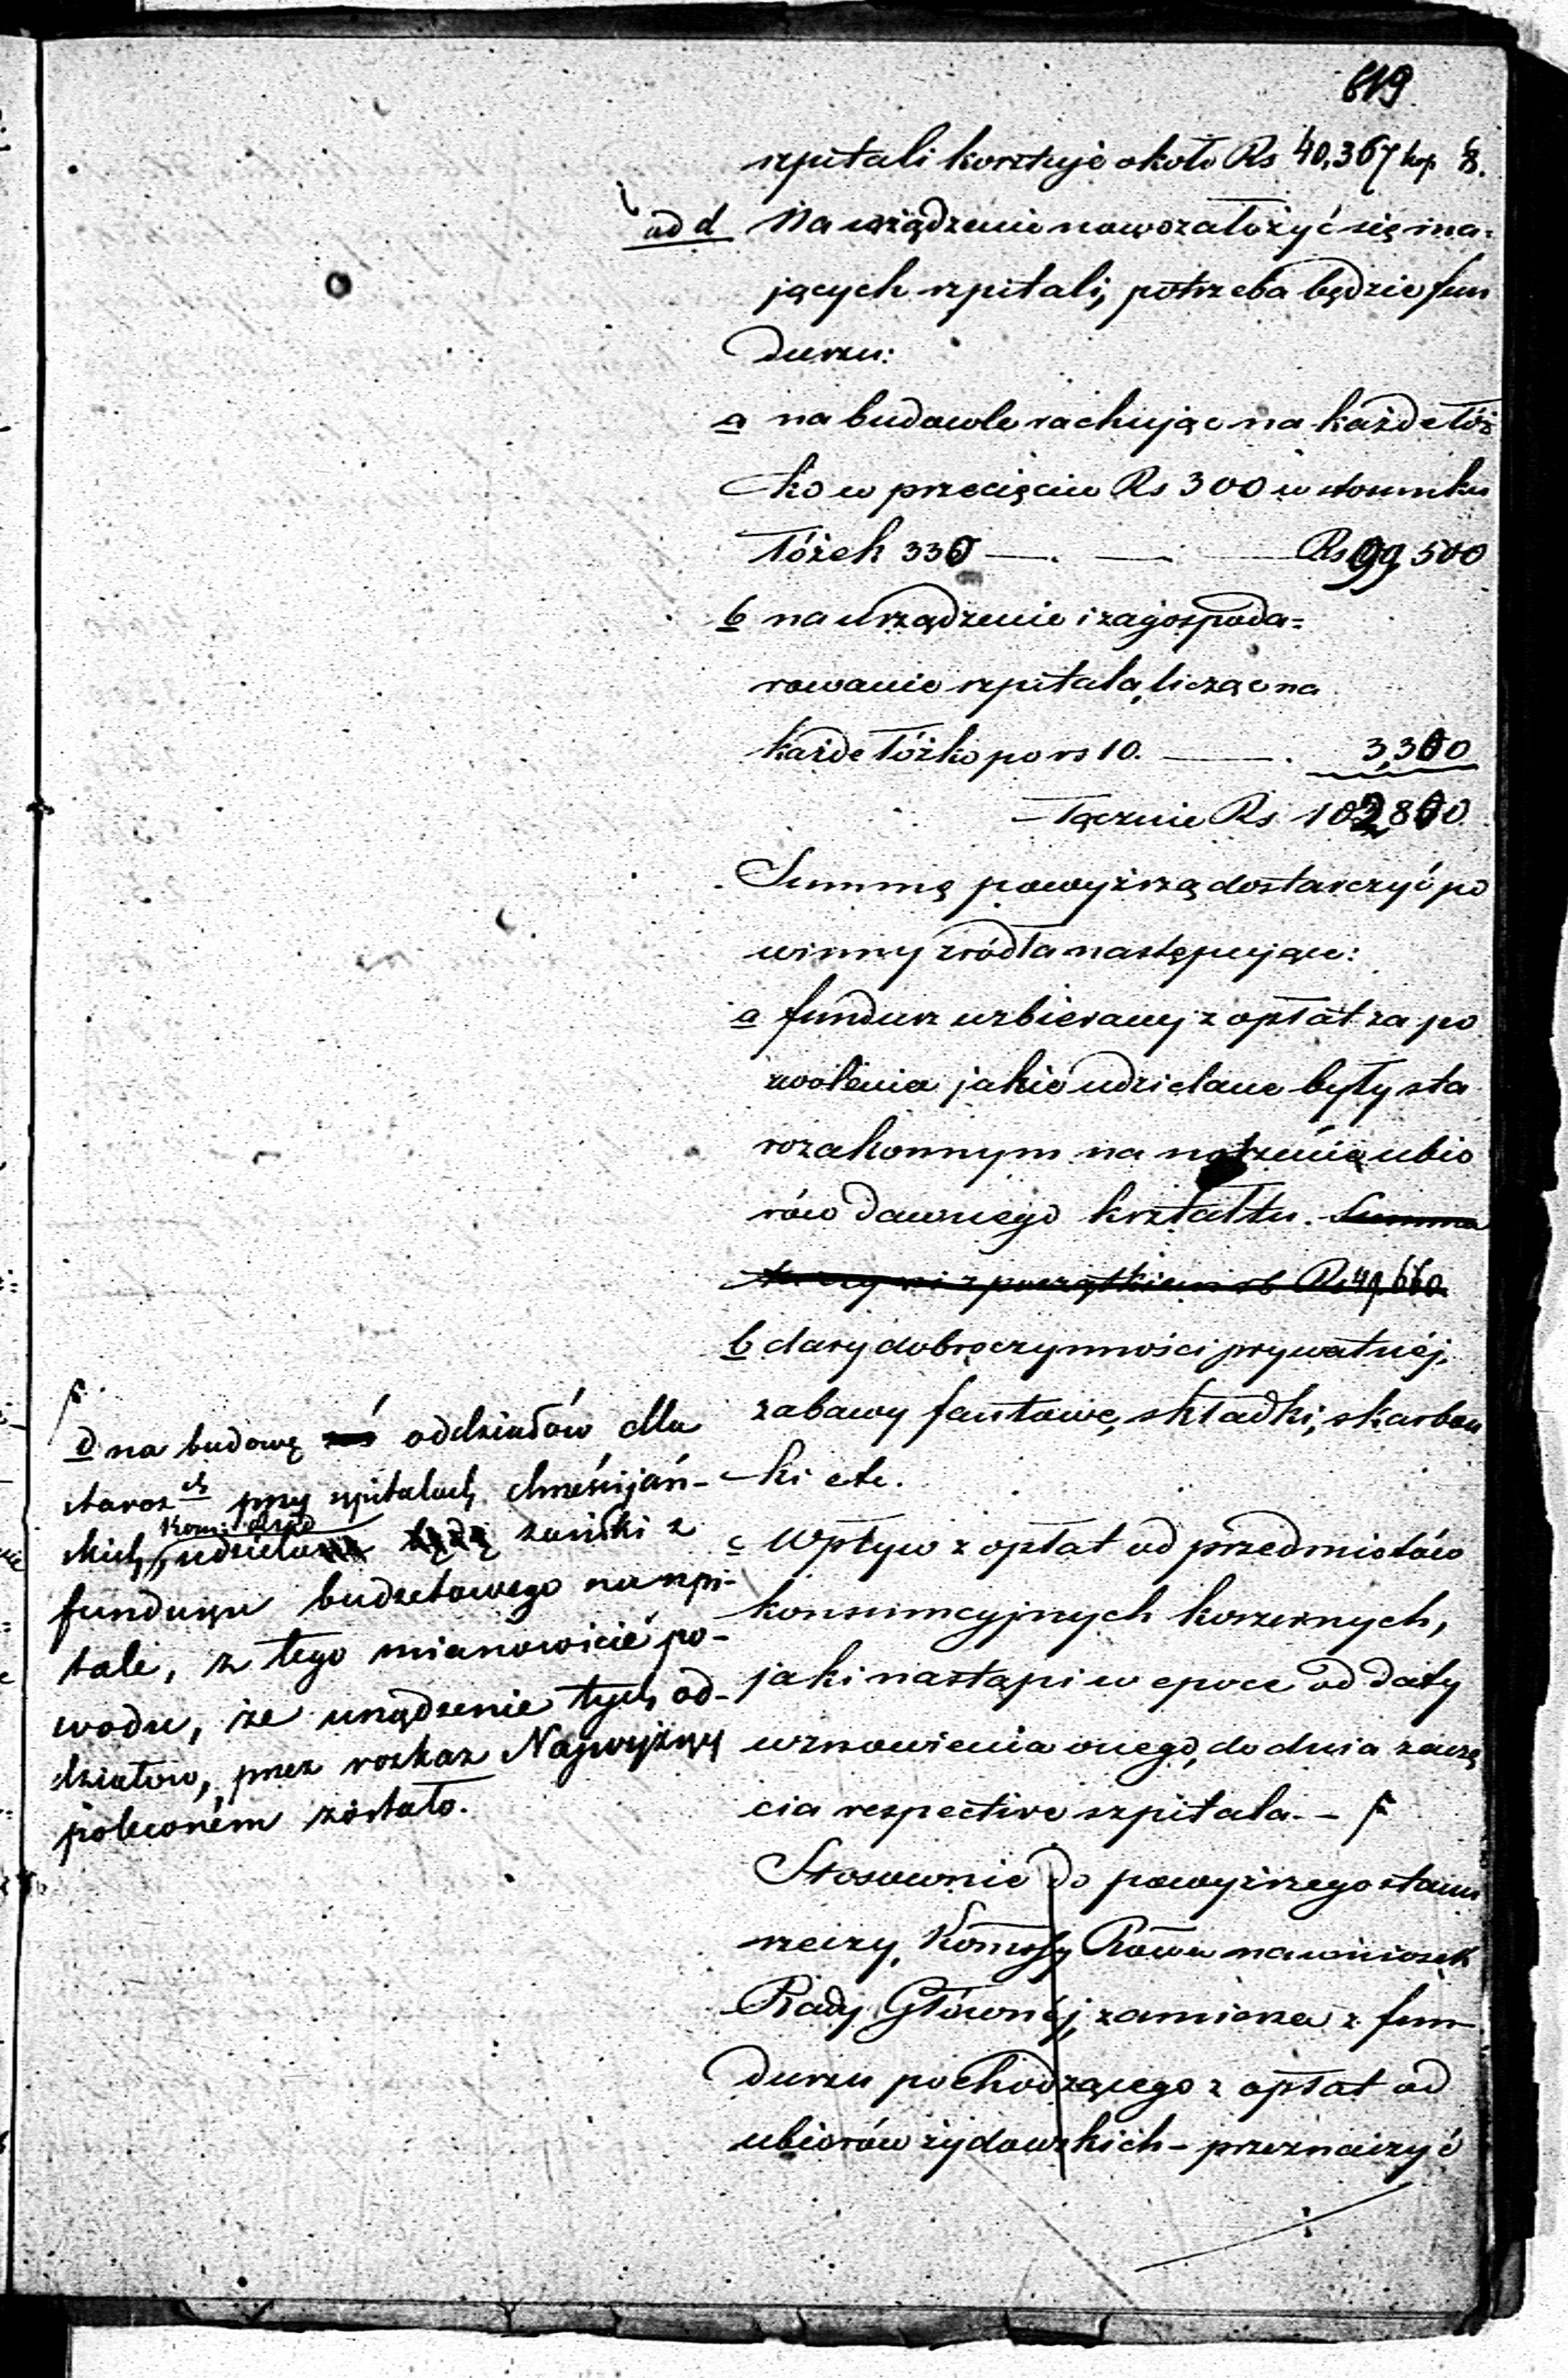 619
szpitali kosztuje około Rs 40,367 kop 8.
ad d Na urządzenie nowozałożyć się ma=
jących szpitali, potrzeba będzie fun
duszu:
a na budowle rachując na każde łóż
ko w przecięciu Rs 300 w stosunku
łóżek 330 —. — — Rs 99,500
b na urządzenie i zagospoda=
rowanie szpitala, licząc na
każde łóżko po rs 10. — . 3,300
łącznie Rs 102,800
Summę powyższą dostarczyć po
winny zródła następujące:
a fundusz uzbierany z opłat za po
zwolenia jakie udzielane były sta
rozakonnym na noszenie ubio
rów dawnego kształtu. Summa
z początkiem Rs 49,660
b dary dobroczynności prywatnéj,
zabawy fantowe, składki, skarbon
ki etc.
c Wpływ z opłat od przedmiotów
konsumcyjnych koszernych,
jaki nastąpi w epoce od daty
wznowienia onego, do dnia zawzę
cia respective szpitala. – F
Stosownie do powyższego stanu
rzeczy, Kommssy Rząwa na wniosek
Rady Głównéj, zamierza z fun
duszu pochodzącego z opłat od
ubiorów żydowskich – przeznaczyć
F
d na budowę oddziałów dla
staroz ch przy szpitalach chrześcijań-
skich, Kom: Rząd udziela będą zasiłki z
funduszu budżetowego na szpi-
tale, z tego mianowicie po-
wodu, że urządzenie tych od-
działów, przez rozkaz Najwyższy
poleconém zostało.